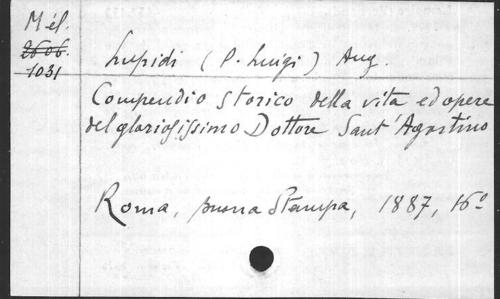 Mél.
2606.
1031
Lupidi (P. Luigi) Aug.
Compendio storico della vita ed opere
del gloriosissimo Dottore Sant'Agostino
Roma, buona Stampa, 1887, 16º